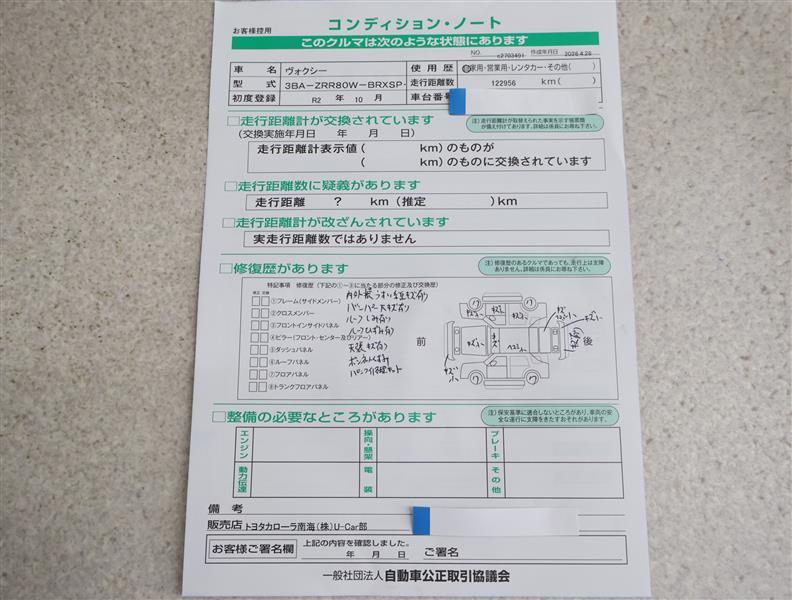 お客様控用
コンディション・ノート
このクルマは次のような状態にあります
NO. c2703491 作成年月日 2026.4.26
車名 ヴォクシー 使用歴 自家用・営業用・レンタカー・その他( )
型式 3BA-ZRR80W-BRXSP- 走行距離数 122956 km( )
初度登録 R2 年 10 月 車台番号
□走行距離計が交換されています
注)走行距離計が取替えられた事実を示す帳票類が備え付けてあります。詳細は係員にお尋ね下さい。
(交換実施年月日 年 月 日)
走行距離計表示値( km)のものが
( km)のものに交換されています
□走行距離数に疑義があります
走行距離 ? km(推定 )km
□走行距離計が改ざんされています
実走行距離数ではありません
□修復歴があります
注)修復歴のあるクルマであっても、走行上は支障ありません。詳細は係員にお尋ね下さい。
特記事項 修復歴(下記の①~⑧に当たる部分の修正及び交換歴)
修正 交換
①フレーム(サイドメンバー)
②クロスメンバー
③フロントインサイドパネル
④ピラー(フロント・センター及びリアー)
⑤ダッシュパネル
⑥ルーフパネル
⑦フロアパネル
⑧トランクフロアパネル
バンパー大キズ有り
ルーフしみ有り
天張キズ有り
前
後
□整備の必要なところがあります
注)保安基準に適合しないところがあり、車両の安全な運行に支障をきたすおそれがあります。
エンジン 操向・懸架 ブレーキ
動力伝達 電装 その他
備考
販売店 トヨタカローラ南海(株)U-Car部
お客様ご署名欄 上記の内容を確認しました。
年 月 日 ご署名
一般社団法人 自動車公正取引協議会